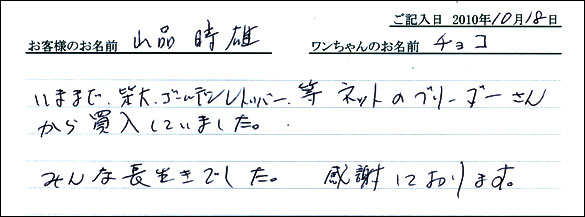 ご記入日 2010年10月18日
お客様のお名前 山品 時雄 ワンちゃんのお名前 チョコ
いままで、柴犬、ゴールデンレトリバー、等 ネットのブリーダーさん
から買入していました。
みんな長生きでした。 感謝しております。